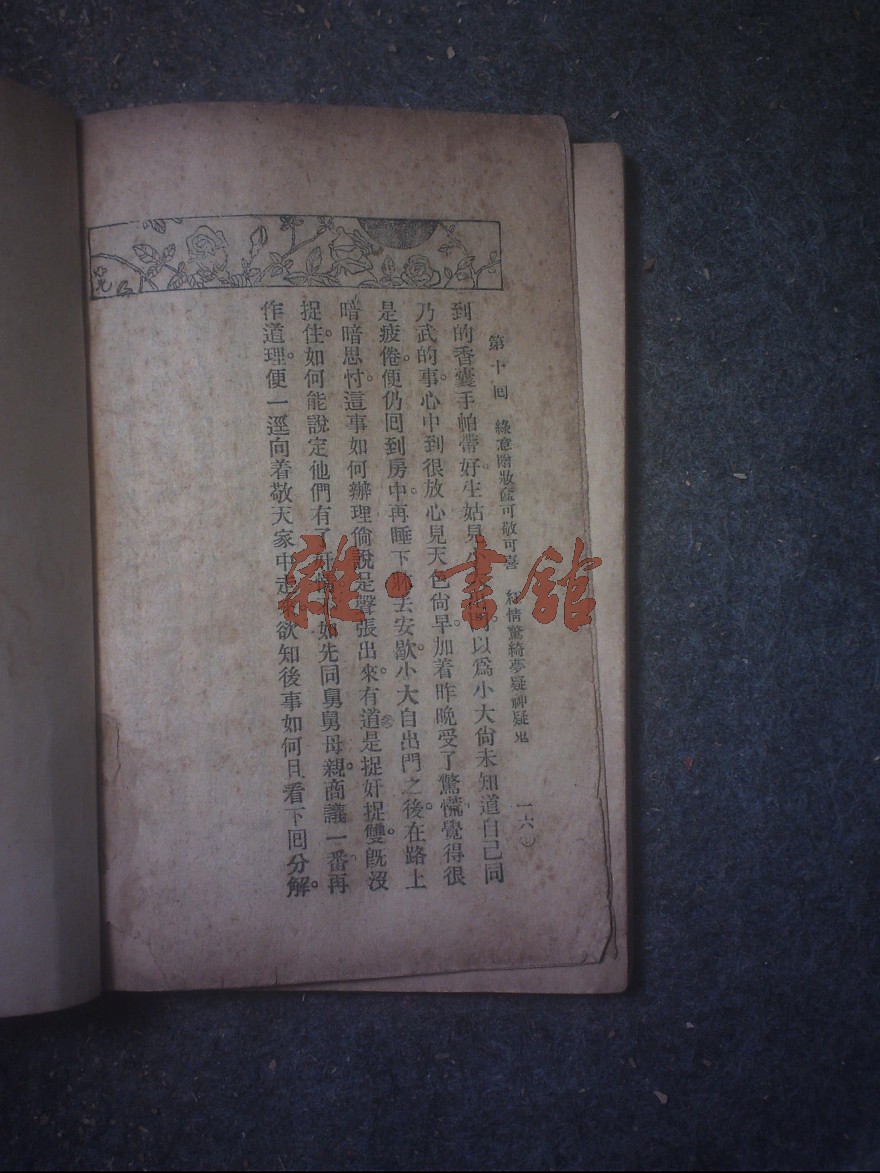 第十回 綠意贈妝奩可敬可喜 紅情驚綺夢疑神疑鬼 一六
到的香囊手帕帶好。生姑見小大以爲小大尙未知道自己同
乃武的事。心中到很放心。見天色尙早。加着昨晚受了驚慌。覺得很
是疲倦。便仍回到房中。再睡下去安歇。小大自出門之後。在路上
暗暗思忖。這事如何辦理。倘說是聲張出來。有道是捉奸捉雙。旣沒
捉住。如何能說定他們有了如先同舅舅母親商議一番。再
作道理。便一逕向着敬天家中走欲知後事如何。且看下回分解。
雜·書館